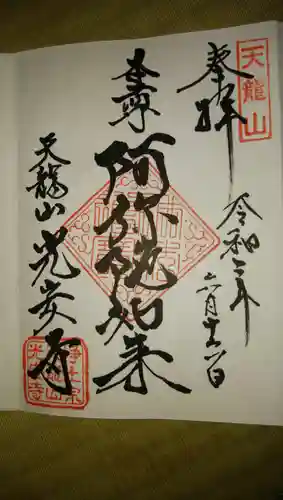 天龍山
奉拝
令和三年
六月十六日
本尊
阿弥陀如来
天龍山 光安寺
浄土宗
天龍山
光安寺